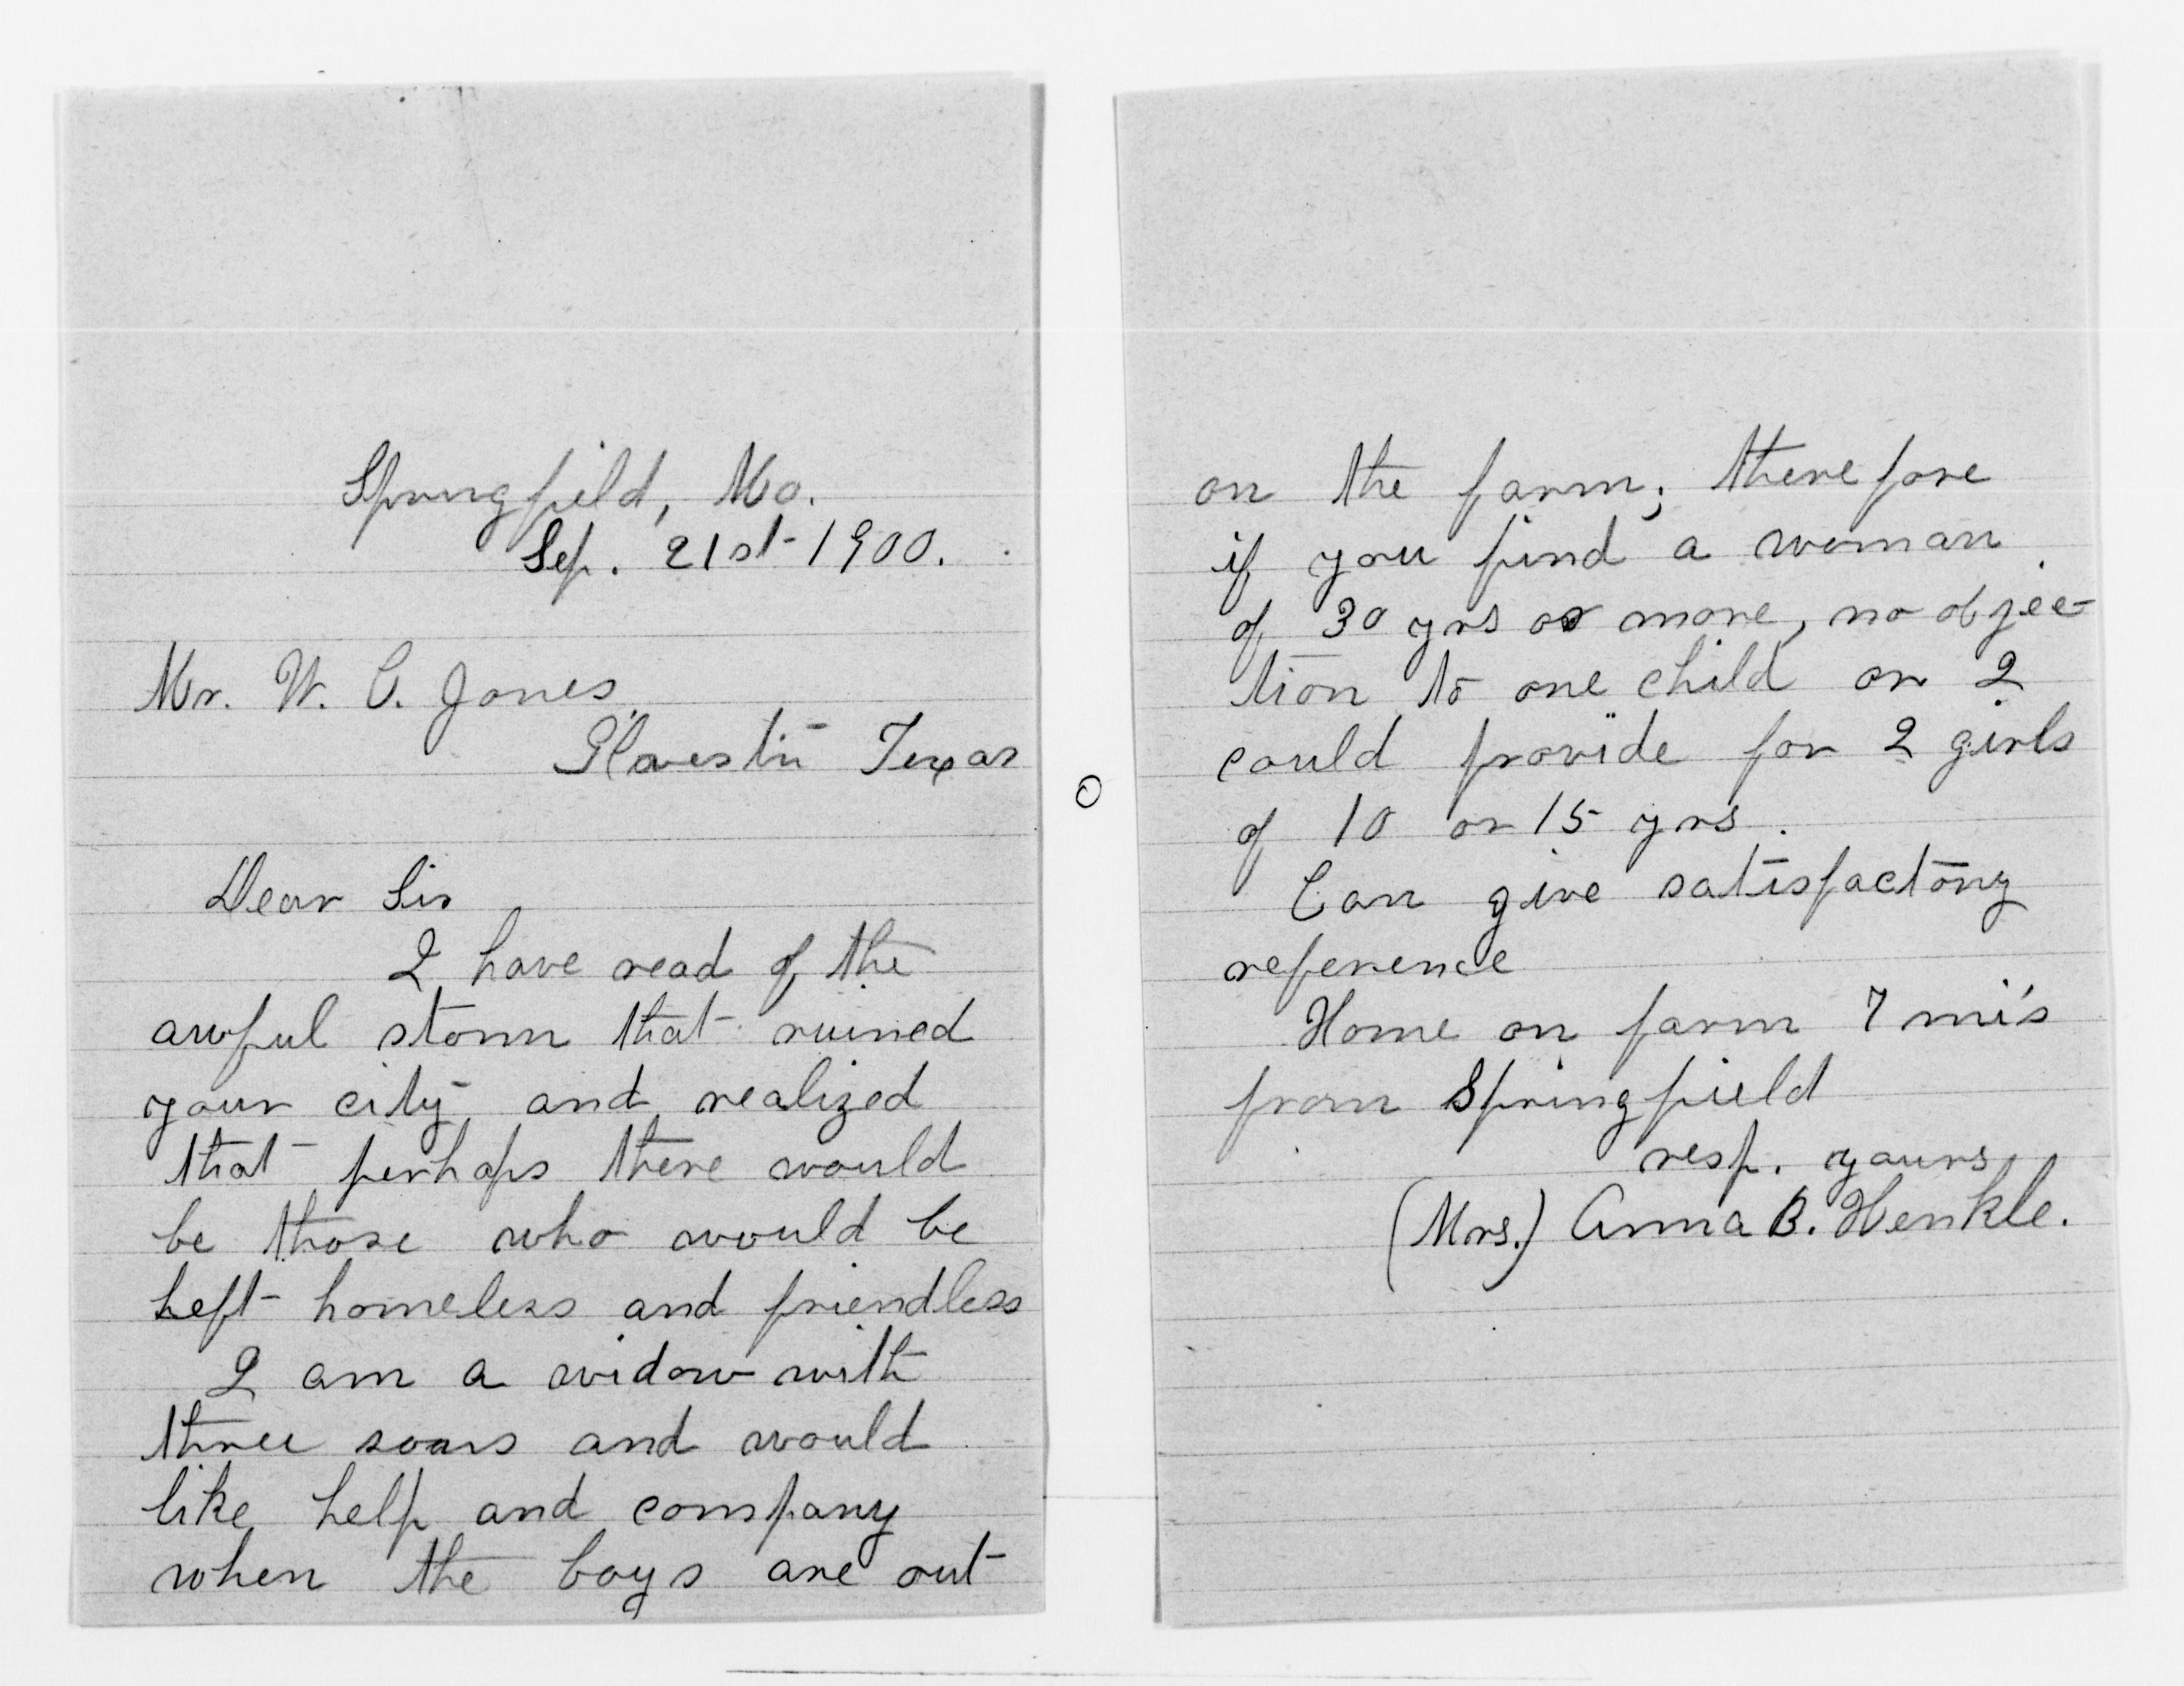 Springfield, Mo.
Sep. 21st 1900.
Mr. W. C. Jones.
Glavestin Texas
Dear Sir
I have read of the
awful storm that ruined
your city and realized
that perhaps there would
be those who would be
Left homeless and friendless
I am a widow with
three sons and would
like help and company
when the boys are out
on the farm; therefore
if you find a woman
of 30 yrs or more, no objec-
tion to one child or 2
could provide for 2 girls
of 10 or 15 yrs.
Can give satisfactory
reference
Home on farm 7 mi's
from Springfield
resp. yours
(Mrs.) Anna B. Henkle.